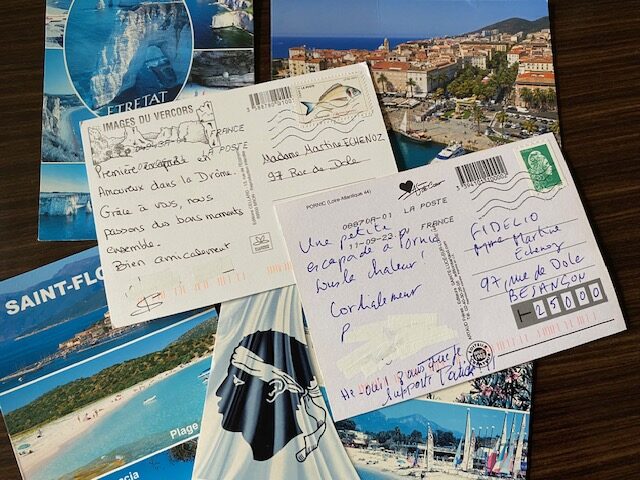 ETRETAT
IMAGES DU VERCORS
FRANCE
LA POSTE
Première escapade en
Amoureux dans la Drôme.
Grâce à vous, nous
passons des bons moments
ensemble.
Bien amicalement
Madame Martine ECHENOZ
97 Rue de Dole
PORNIC (Loire-Atlantique 44)
08870A-01 LA POSTE
11-09-22 FRANCE
Une petite
escapade à Pornic
sous la chaleur!
Cordialement
P
He oui! 8 ans que je
supporte l'autre
FIDELIO
Mme Martine
Echenoz
97, rue de Dole
BESANÇON
25000
SAINT-FLO
Plage